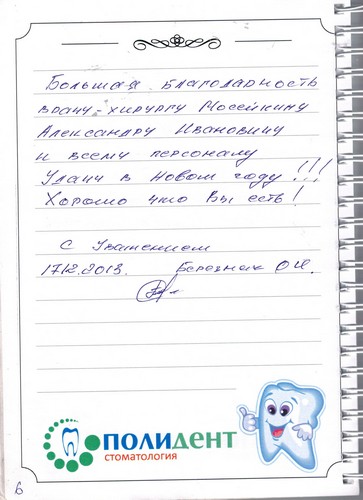 Большая благодарность
врачу-хирургу Мосейкину
Александру Ивановичу
и всему персоналу
Удачи в новом году!!!
Хорошо что Вы есть!
С Уважением
17.12.2013. Березняк О.И.
ПОЛИДЕНТ
СТОМАТОЛОГИЯ
6